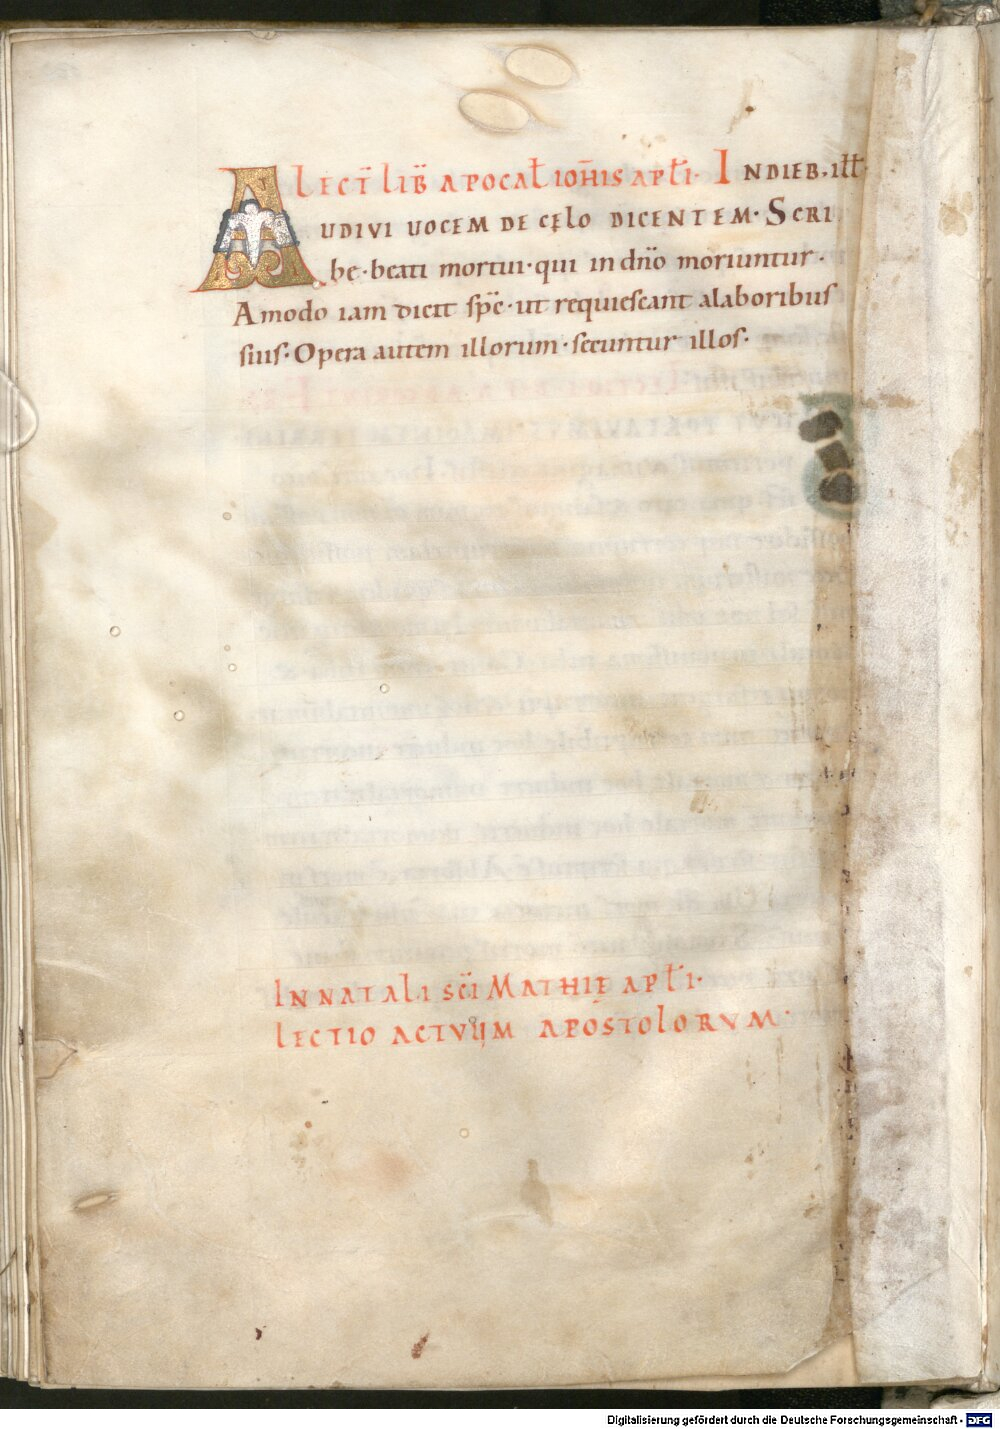 LECT̄ LIB̄ APOCAƚ IOH̄IS APƚI· IN DIEB· ILƚ·
AUDIVI UOCEM DE CĘLO DICENTEM· SCRI
be· beati mortui· qui in dn̄o moriuntur·
Amodo iam dicit sp̄c· ut requiescant alaboribus
suis· Opera autem illorum· secuntur illos·
IN NATALI SC̄I MATHIĘ APƚI·
LECTIO ACTVUM APOSTOLORVM·
Digitalisierung gefördert durch die Deutsche Forschungsgemeinschaft - DFG